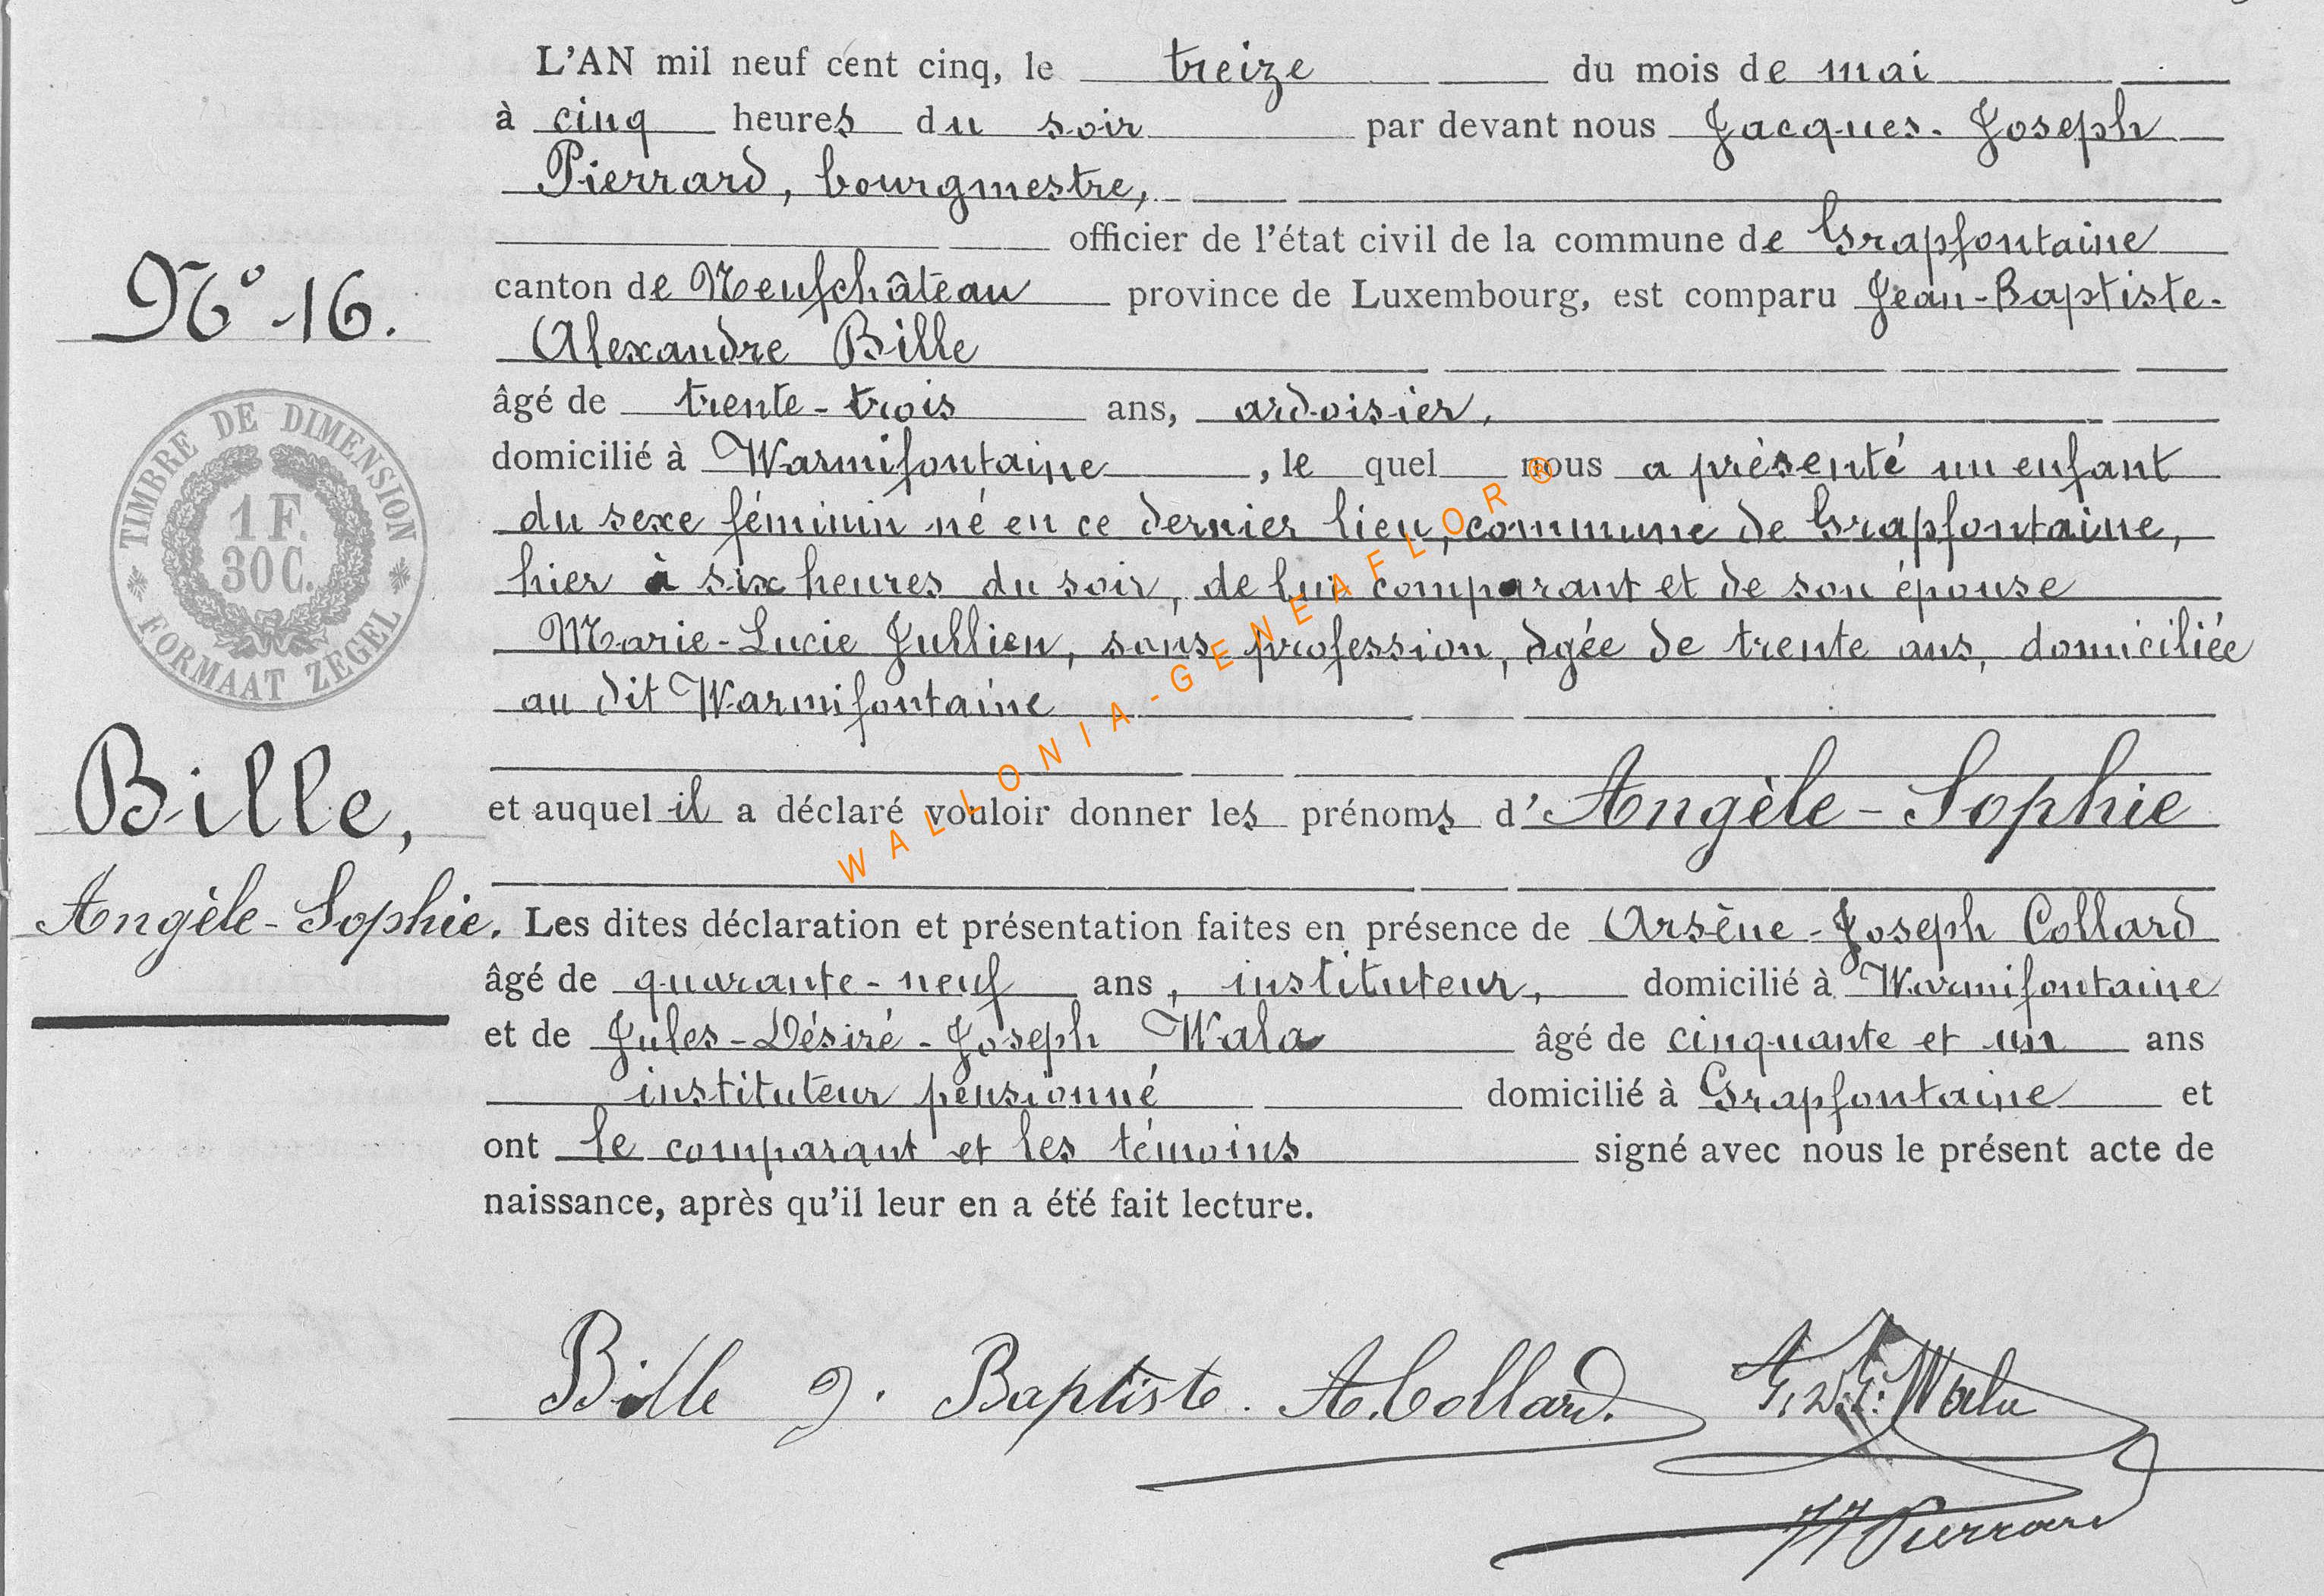 L'AN mil neuf cent cinq, le treize du mois de mai
à cinq heures du soir par devant nous Jacques-Joseph
Pierrard, bourgmestre,
officier de l'état civil de la commune de Grapfontaine
N° 16.
canton de Neufchâteau province de Luxembourg, est comparu Jean-Baptiste-
Alexandre Bille
âgé de trente-trois ans, ardoisier,
domicilié à Warmifontaine, le quel nous a présenté un enfant
du sexe féminin né en ce dernier lieu, commune de Grapfontaine,
hier à six heures du soir, de lui comparant et de son épouse
Marie-Lucie Jullien, sans profession, âgée de trente ans, domiciliée
au dit Warmifontaine
TIMBRE DE DIMENSION
1 F.
30 C.
FORMAAT ZEGEL
Bille,
Angèle-Sophie.
et auquel il a déclaré vouloir donner les prénoms d'Angèle-Sophie
Les dites déclaration et présentation faites en présence de Arsène-Joseph Collard
âgé de quarante-neuf ans, instituteur, domicilié à Warmifontaine
et de Jules-Désiré-Joseph Wala âgé de cinquante et un ans
instituteur pensionné domicilié à Grapfontaine et
ont le comparant et les témoins signé avec nous le présent acte de
naissance, après qu'il leur en a été fait lecture.
Bille J. Baptiste. A. Collard. J. D. J. Wala
JJ Pierrard
WALLONIA-GENEAFLOR ®